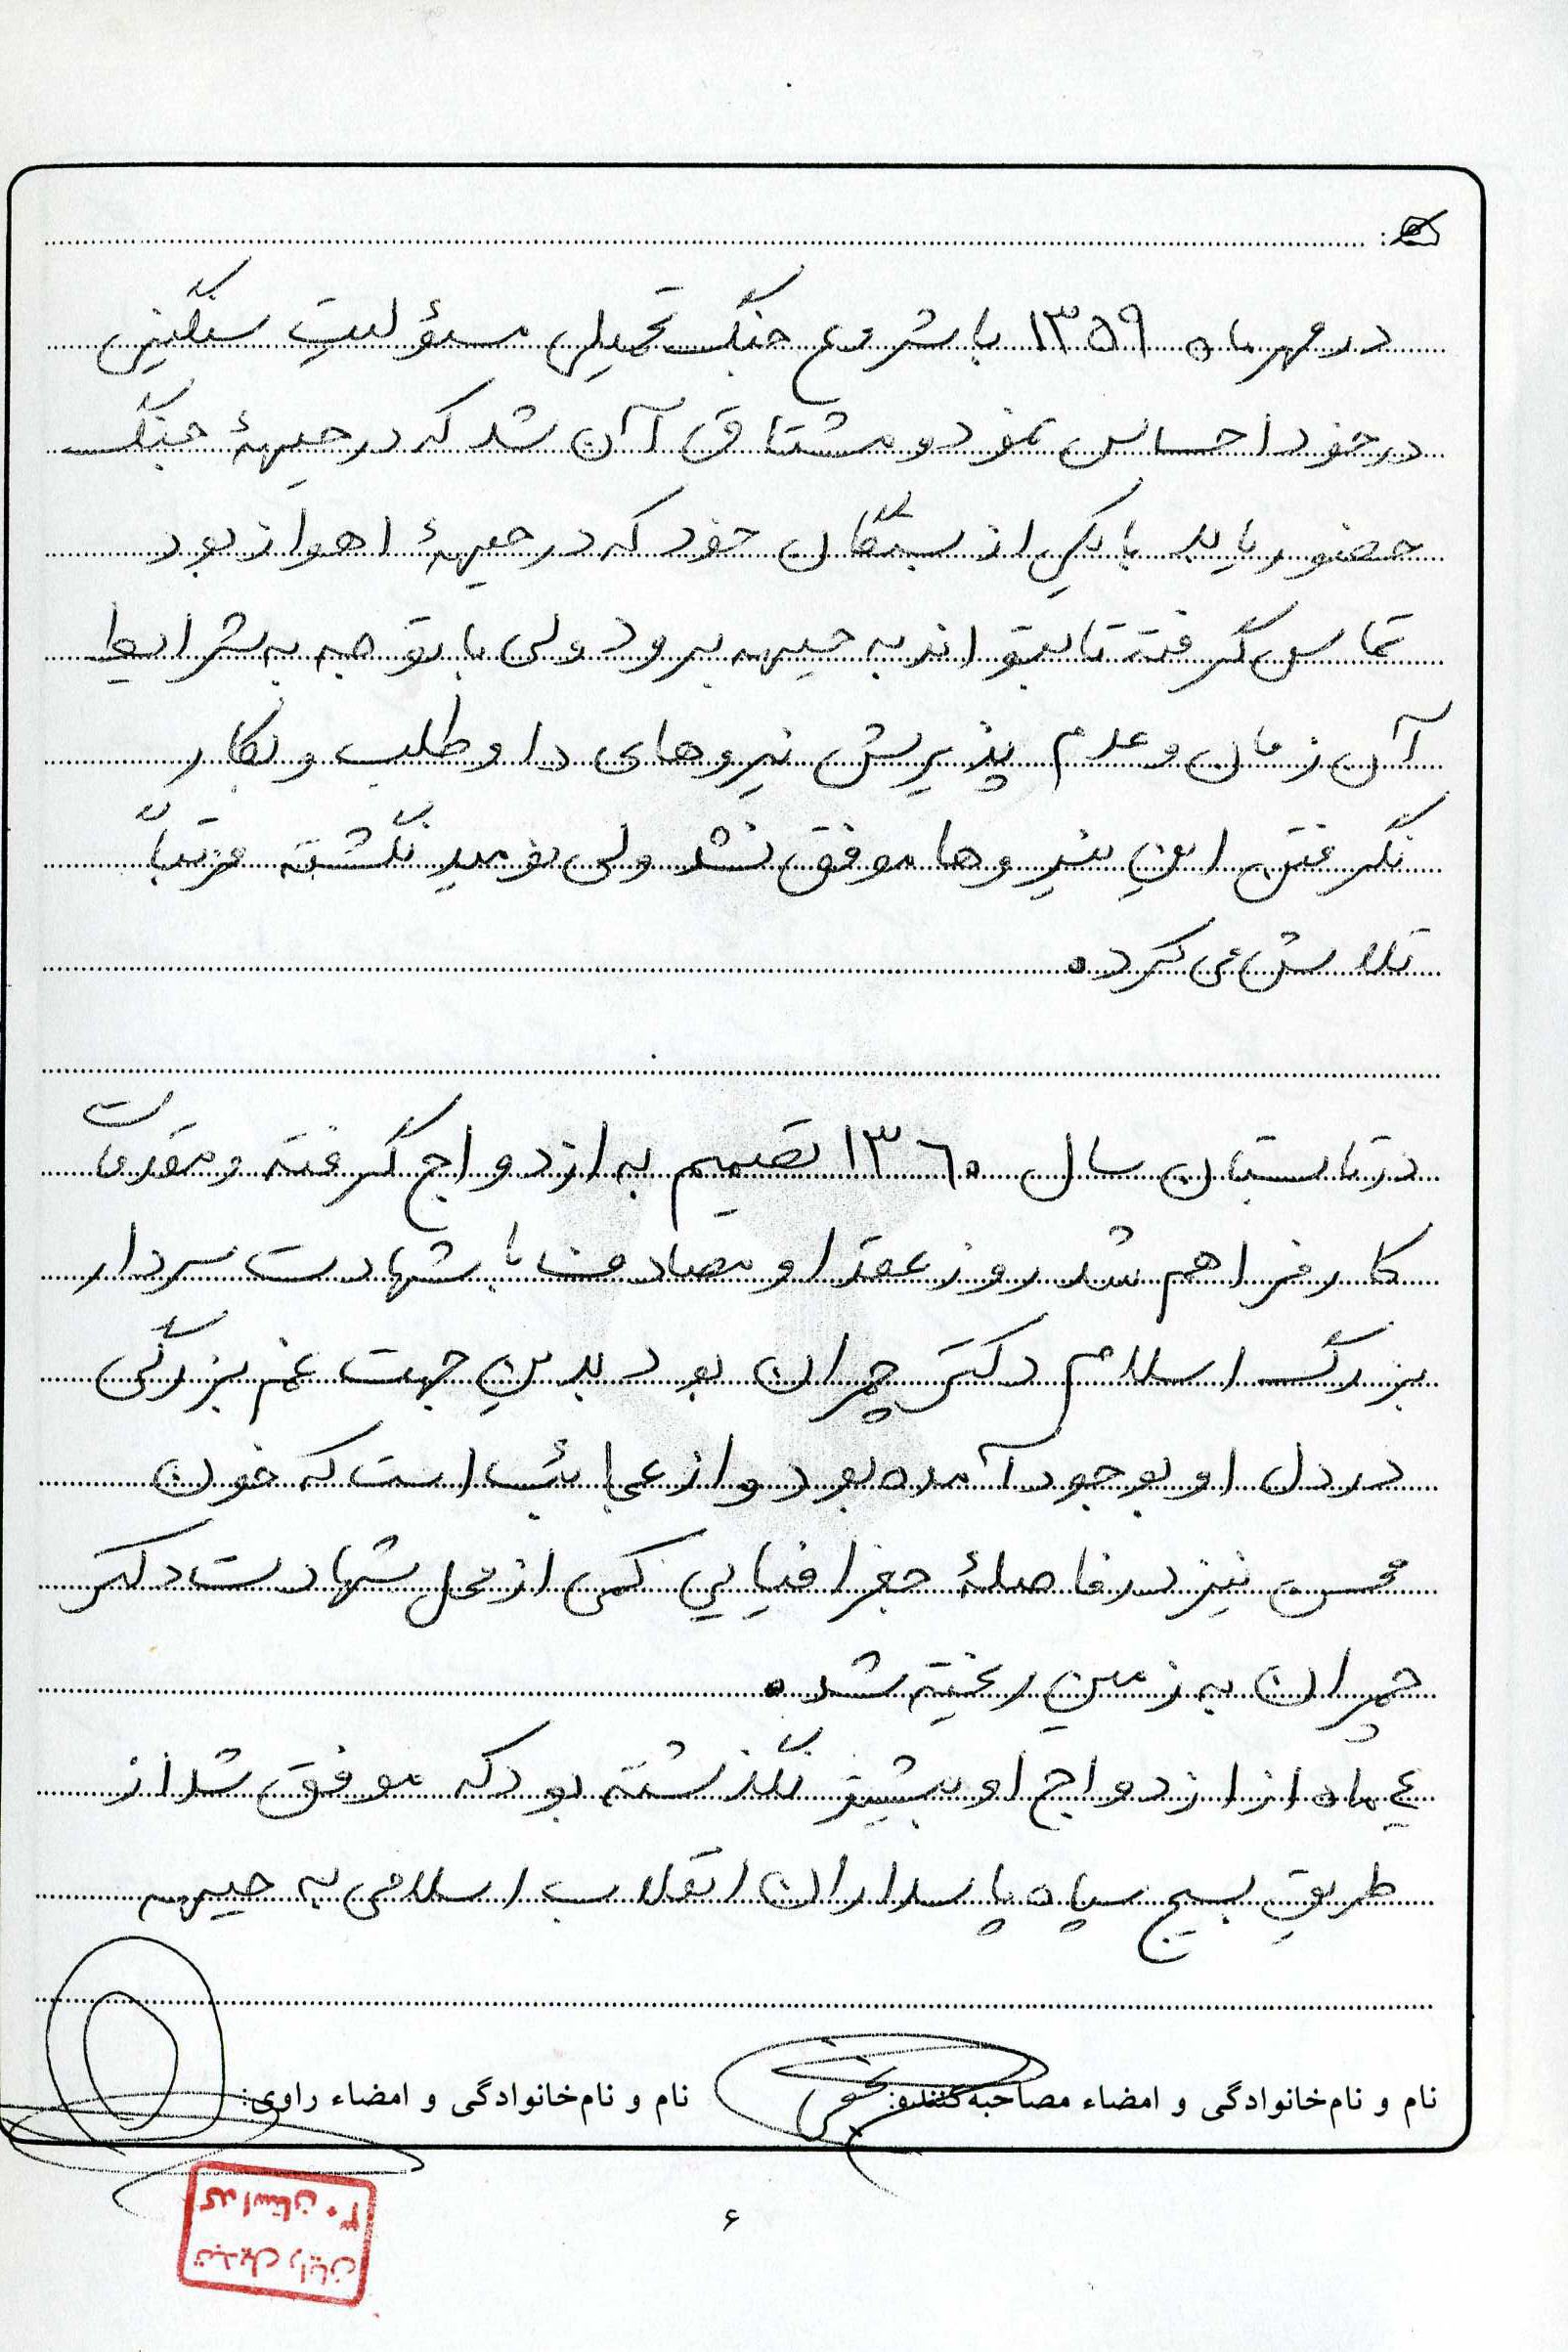 در مهر ماه ۱۳۵۹ با شروع جنگ تحمیلی مسؤلیت سنگینی
در خود احساس نمود و مشتاق آن شد که در جبههٔ جنگ
حضور یابد با یکی از بستگان خود که در جبههٔ اهواز بود
تماس گرفته تا بتواند به جبهه برود ولی با توجه به شرایط
آن زمان و عدم پذیرش نیروهای داوطلب و بکار
نگرفتن این نیروها موفق نشد ولی نومید نگشته مرتباً
تلاش می کرد.
در تابستان سال ۱۳۶۰ تصمیم به ازدواج گرفته و مقدمات
کار فراهم شد روز عقد او مصادف با شهادت سردار
بزرگ اسلام دکتر چمران بود بدین جهت غم بزرگی
در دل او بوجود آمده بود و از عجائب است که خون
محسن نیز در فاصلهٔ جغرافیایی کمی از محل شهادت دکتر
چمران به زمین ریخته شد.
۴ ماه از ازدواج او بیشتر نگذشته بود که موفق شد از
طریق بسیج سپاه پاسداران انقلاب اسلامی به جبهه
نام و نام‌خانوادگی و امضاء مصاحبه‌کننده: نام و نام‌خانوادگی و امضاء راوی:
۶
تبدیل رایان
کد استان ۲۰